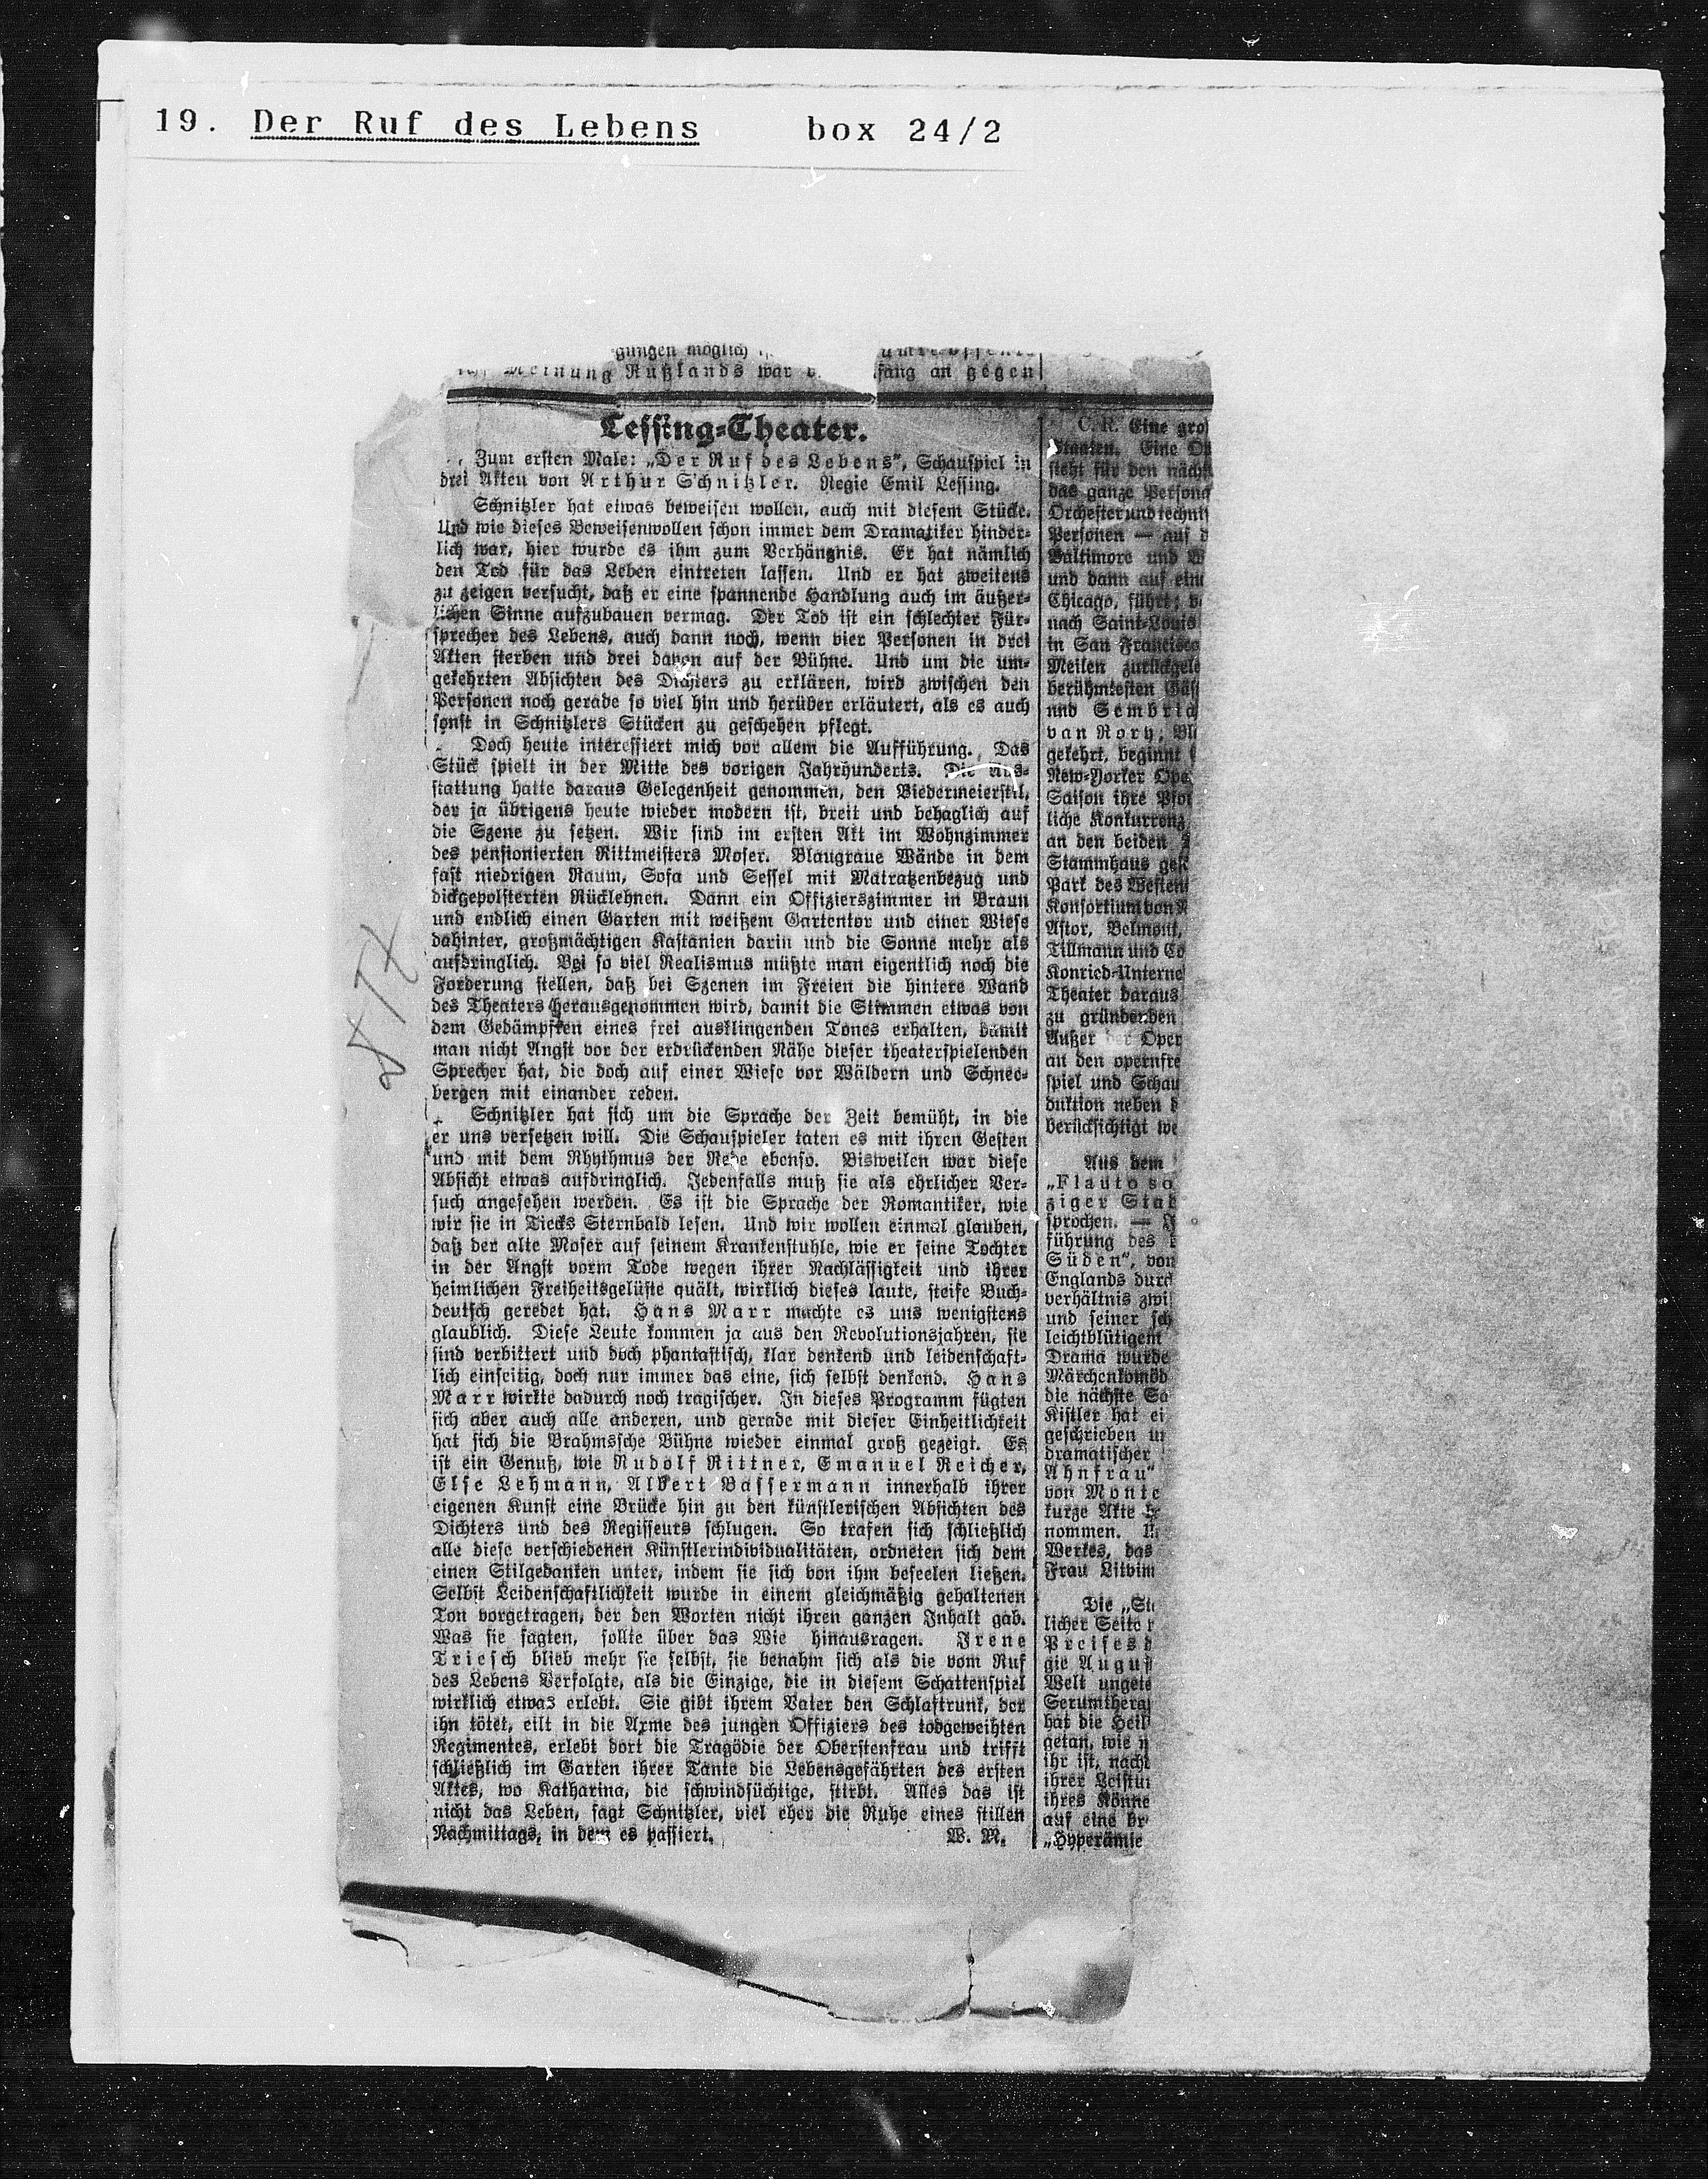 19. Der Ruf des Lebens box 24/2
gungen möglich
Meinung Rußlands war
fang an gegen
Lessing-Theater.
Zum ersten Male: „Der Ruf des Lebens“, Schauspiel in
drei Akten von Arthur Schnitzler. Regie Emil Lessing.
Schnitzler hat etwas beweisen wollen, auch mit diesem Stücke.
Und wie dieses Beweisenwollen schon immer dem Dramatiker hinder-
lich war, hier wurde es ihm zum Verhängnis. Er hat nämlich
den Tod für das Leben eintreten lassen. Und er hat zweitens
zu zeigen versucht, daß er eine spannende Handlung auch im äußer-
lichen Sinne aufzubauen vermag. Der Tod ist ein schlechter Für-
sprecher des Lebens, auch dann noch, wenn vier Personen in drei
Akten sterben und drei davon auf der Bühne. Und um die um-
gekehrten Absichten des Dichters zu erklären, wird zwischen den
Personen noch gerade so viel hin und herüber erläutert, als es auch
sonst in Schnitzlers Stücken zu geschehen pflegt.
Doch heute interessiert mich vor allem die Aufführung. Das
Stück spielt in der Mitte des vorigen Jahrhunderts. Die Aus-
stattung hatte daraus Gelegenheit genommen, den Biedermeierstil,
der ja übrigens heute wieder modern ist, breit und behaglich auf
die Szene zu setzen. Wir sind im ersten Akt im Wohnzimmer
des pensionierten Rittmeisters Moser. Blaugraue Wände in dem
fast niedrigen Raum, Sofa und Sessel mit Matratzenbezug und
dickgepolsterten Rücklehnen. Dann ein Offizierszimmer in Braun
und endlich einen Garten mit weißem Gartentor und einer Wiese
dahinter, großmächtigen Kastanien darin und die Sonne mehr als
aufdringlich. Bei so viel Realismus müßte man eigentlich noch die
Forderung stellen, daß bei Szenen im Freien die hintere Wand
des Theaters herausgenommen wird, damit die Stimmen etwas von
dem Gedämpften eines frei ausklingenden Tones erhalten, damit
man nicht Angst vor der erdrückenden Nähe dieser theaterspielenden
Sprecher hat, die doch auf einer Wiese vor Wäldern und Schnee-
bergen mit einander reden.
Schnitzler hat sich um die Sprache der Zeit bemüht, in die
er uns versetzen will. Die Schauspieler taten es mit ihren Gesten
und mit dem Rhythmus der Rede ebenso. Bisweilen war diese
Absicht etwas aufdringlich. Jedenfalls muß sie als ehrlicher Ver-
such angesehen werden. Es ist die Sprache der Romantiker, wie
wir sie in Tiecks Sternbald lesen. Und wir wollen einmal glauben,
daß der alte Moser auf seinem Krankenstuhle, wie er seine Tochter
in der Angst vorm Tode wegen ihrer Nachlässigkeit und ihrer
heimlichen Freiheitsgelüste quält, wirklich dieses laute, steife Buch-
deutsch geredet hat. Hans Marr machte es uns wenigstens
glaublich. Diese Leute kommen ja aus den Revolutionsjahren, sie
sind verbittert und doch phantastisch, klar denkend und leidenschaft-
lich einseitig, doch nur immer das eine, sich selbst denkend. Hans
Marr wirkte dadurch noch tragischer. In dieses Programm fügten
sich aber auch alle anderen, und gerade mit dieser Einheitlichkeit
hat sich die Brahmsche Bühne wieder einmal groß gezeigt. Es
ist ein Genuß, wie Rudolf Rittner, Emanuel Reicher,
Else Lehmann, Albert Bassermann innerhalb ihrer
eigenen Kunst eine Brücke hin zu den künstlerischen Absichten des
Dichters und des Regisseurs schlugen. So trafen sich schließlich
alle diese verschiedenen Künstlerindividualitäten, ordneten sich dem
einen Stilgedanken unter, indem sie sich von ihm beseelen ließen.
Selbst Leidenschaftlichkeit wurde in einem gleichmäßig gehaltenen
Ton vorgetragen, der den Worten nicht ihren ganzen Inhalt gab.
Was sie sagten, sollte über das Wie hinausragen. Irene
Triesch blieb mehr sie selbst, sie benahm sich als die vom Ruf
des Lebens Verfolgte, als die Einzige, die in diesem Schattenspiel
wirklich etwas erlebt. Sie gibt ihrem Vater den Schlaftrunk, der
ihn tötet, eilt in die Arme des jungen Offiziers des todgeweihten
Regimentes, erlebt dort die Tragödie der Oberstenfrau und trifft
schließlich im Garten ihrer Tante die Lebensgefährten des ersten
Aktes, wo Katharina, die schwindsüchtige, stirbt. Alles das ist
nicht das Leben, sagt Schnitzler, viel eher die Ruhe eines stillen
Nachmittags, in dem es passiert. W. M.
C. R. Eine gro
Staaten. Eine
steht für den nächst
das ganze Persona
Orchester und techni
Personen — auf d
Baltimore und W
und dann auf ein
Chicago, führt;
nach Saint-Louis
in San Francisco
Meilen zurückgele
berühmtesten Gäs
und Sembric
van Rory,
gekehrt, beginnt
New-Yorker Ope
Saison ihre
liche Konkurrenz
an den beiden
Stammhaus
Park des Westens
Konsortium von
Astor, Belmont,
Tillmann und Co
Konried-Unterne
Theater daraus
zu gründenden
Außer der Oper
an den opernfre
spiel und Schau
duktion neben
berücksichtigt we
Aus dem
„Flauto so
ziger Stad
sprochen. —
führung des
Süden“, von
Englands durch
verhältnis zwi
und seiner sch
leichtblütigem
Drama wurde
Märchenkomöd
die nächste Sa
Kistler hat ei
geschrieben un
dramatischer
Ahnfrau“
von Monte
kurze Akte
nommen.
Werkes, das
Frau Litvin
Die „
licher Seite
Preises
gie August
Welt ungete
Serumthera
hat die Heil
getan, wie
ihr ist, nach
ihrer Leistu
ihres Könne
auf eine
„Hyperämie